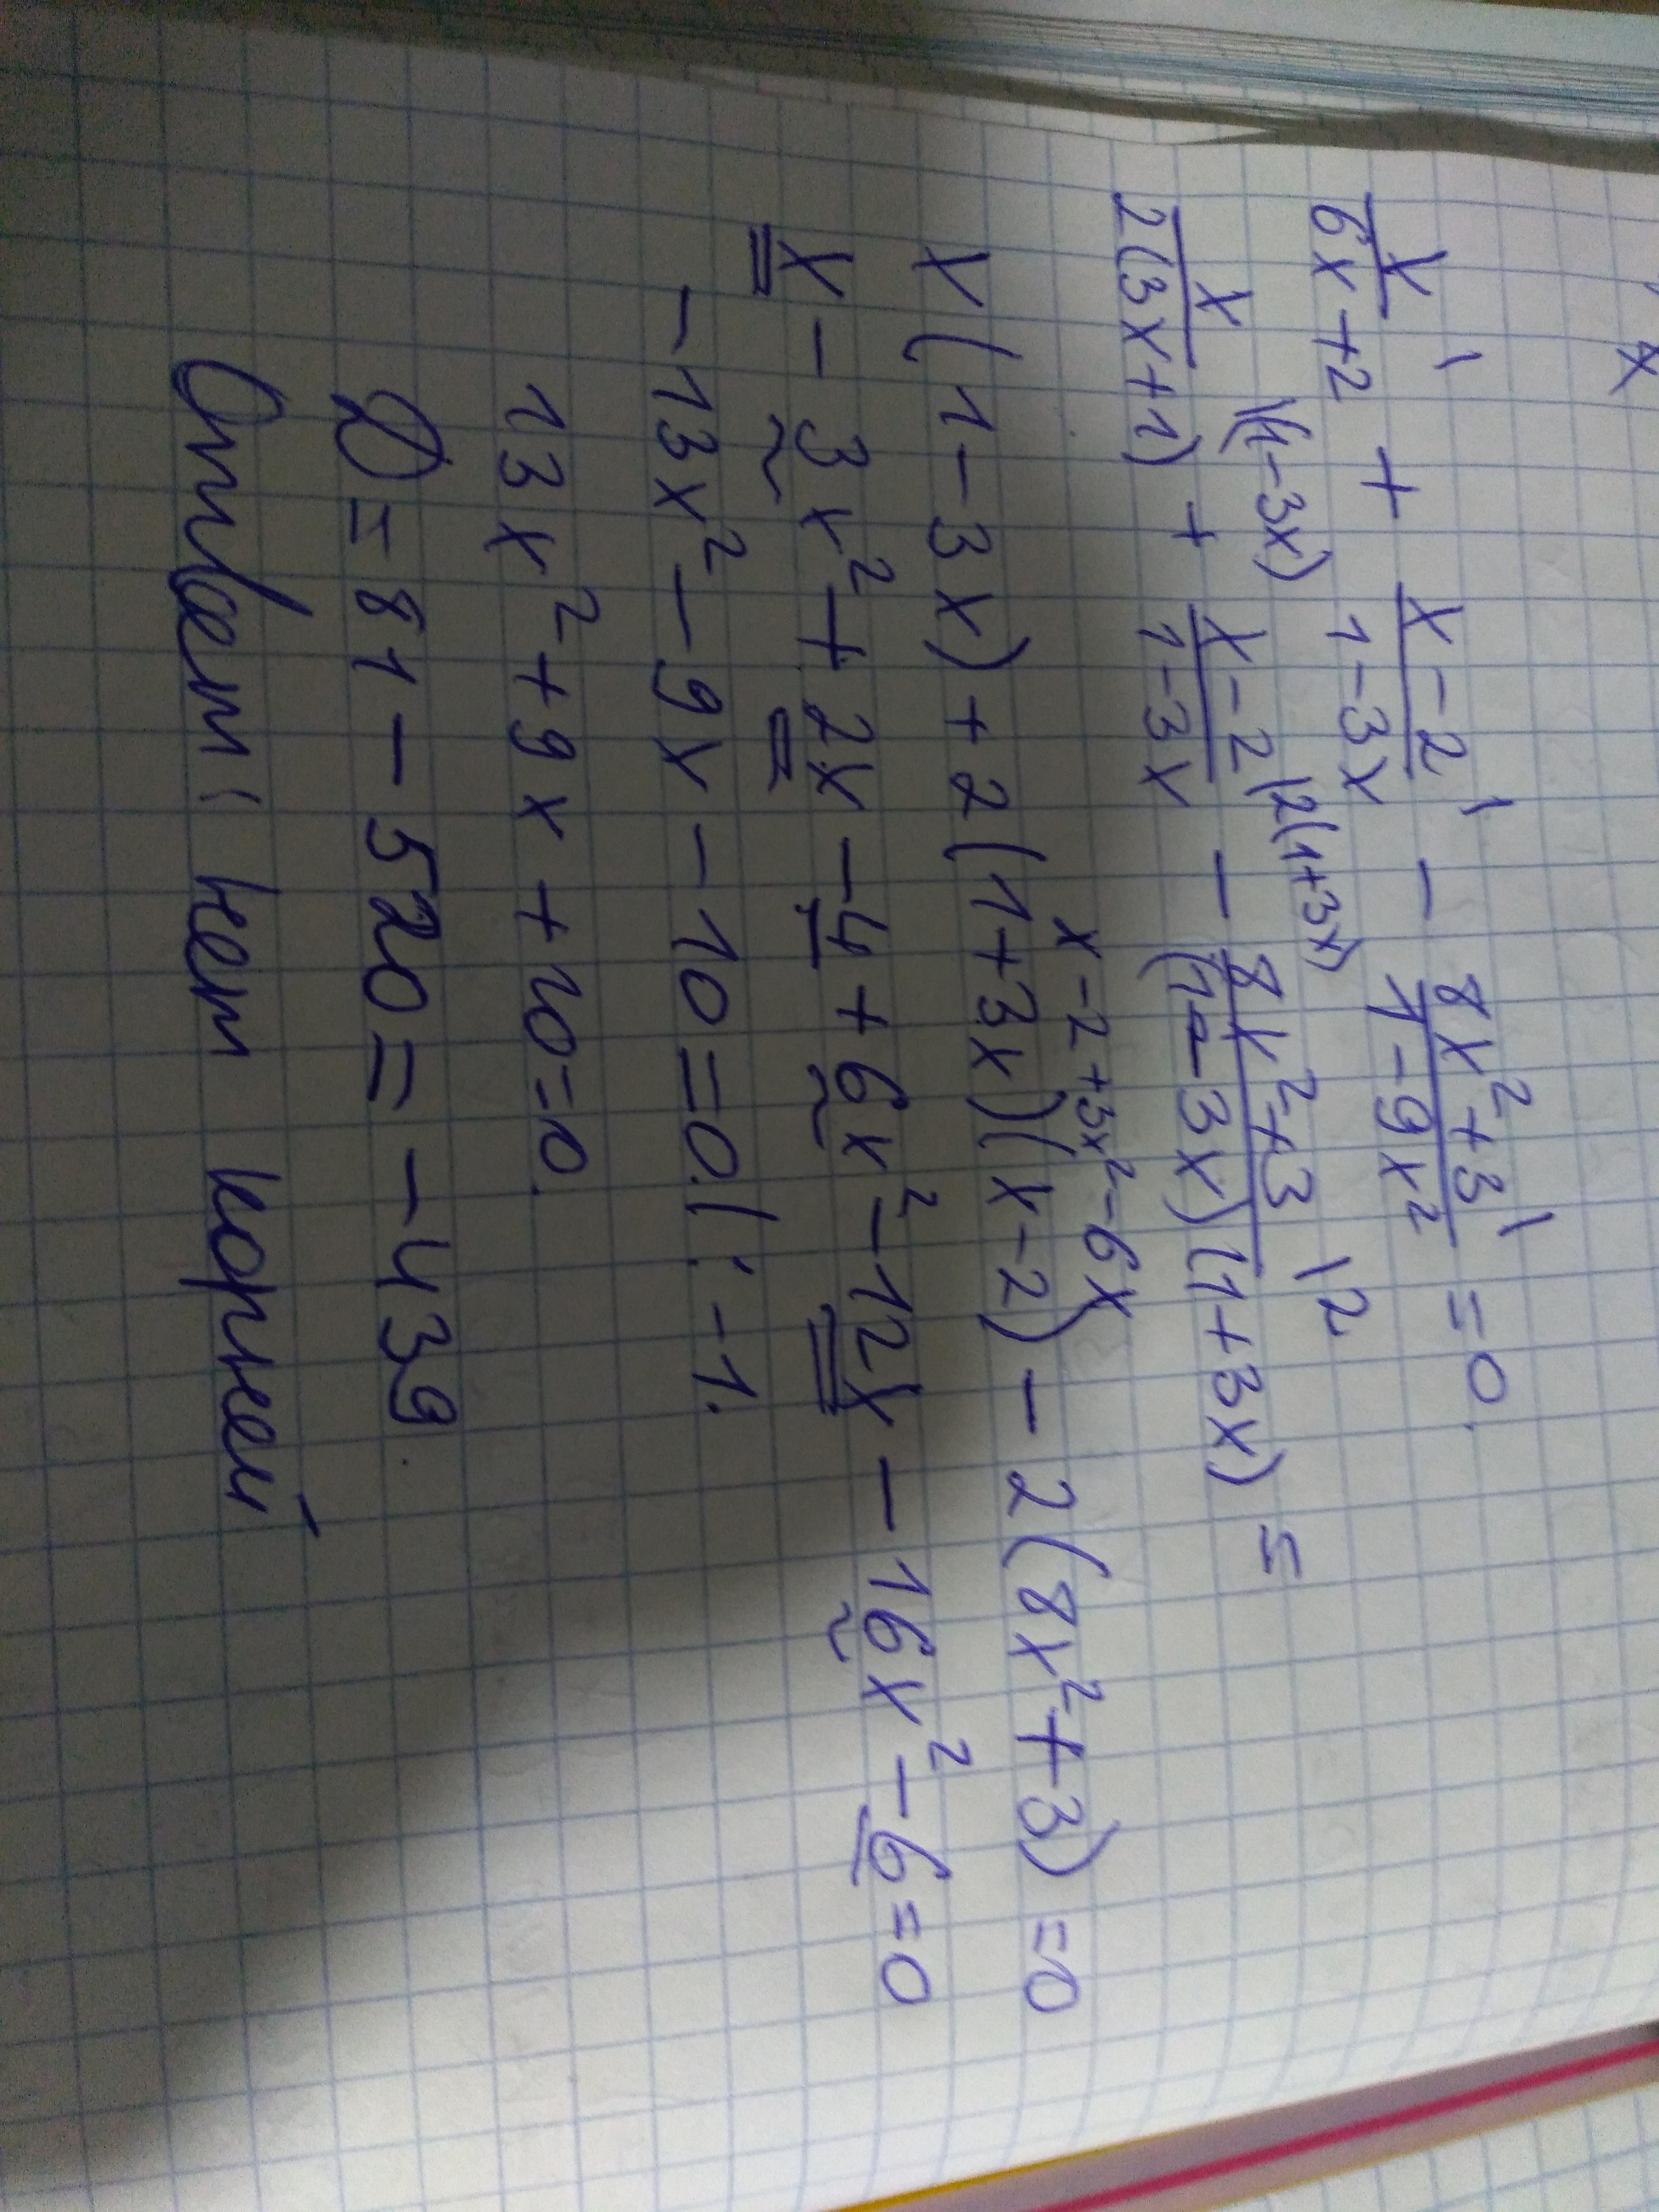 x
x/(6x+2) + (x-2)/(1-3x) - (8x²+3)/(1-9x²) = 0.
x/(2(3x+1)) \(1-3x) + (x-2)/(1-3x) \2(1+3x) - (8x²+3)/((1-3x)(1+3x)) \2 =
x-2+3x²-6x
x(1-3x)+2(1+3x)(x-2)-2(8x²+3)=0
x-3x²+2x-4+6x²-12x-16x²-6=0
-13x²-9x-10=0.|:-1.
13x²+9x+10=0.
D=81-520=-439.
Ответ: нет корней